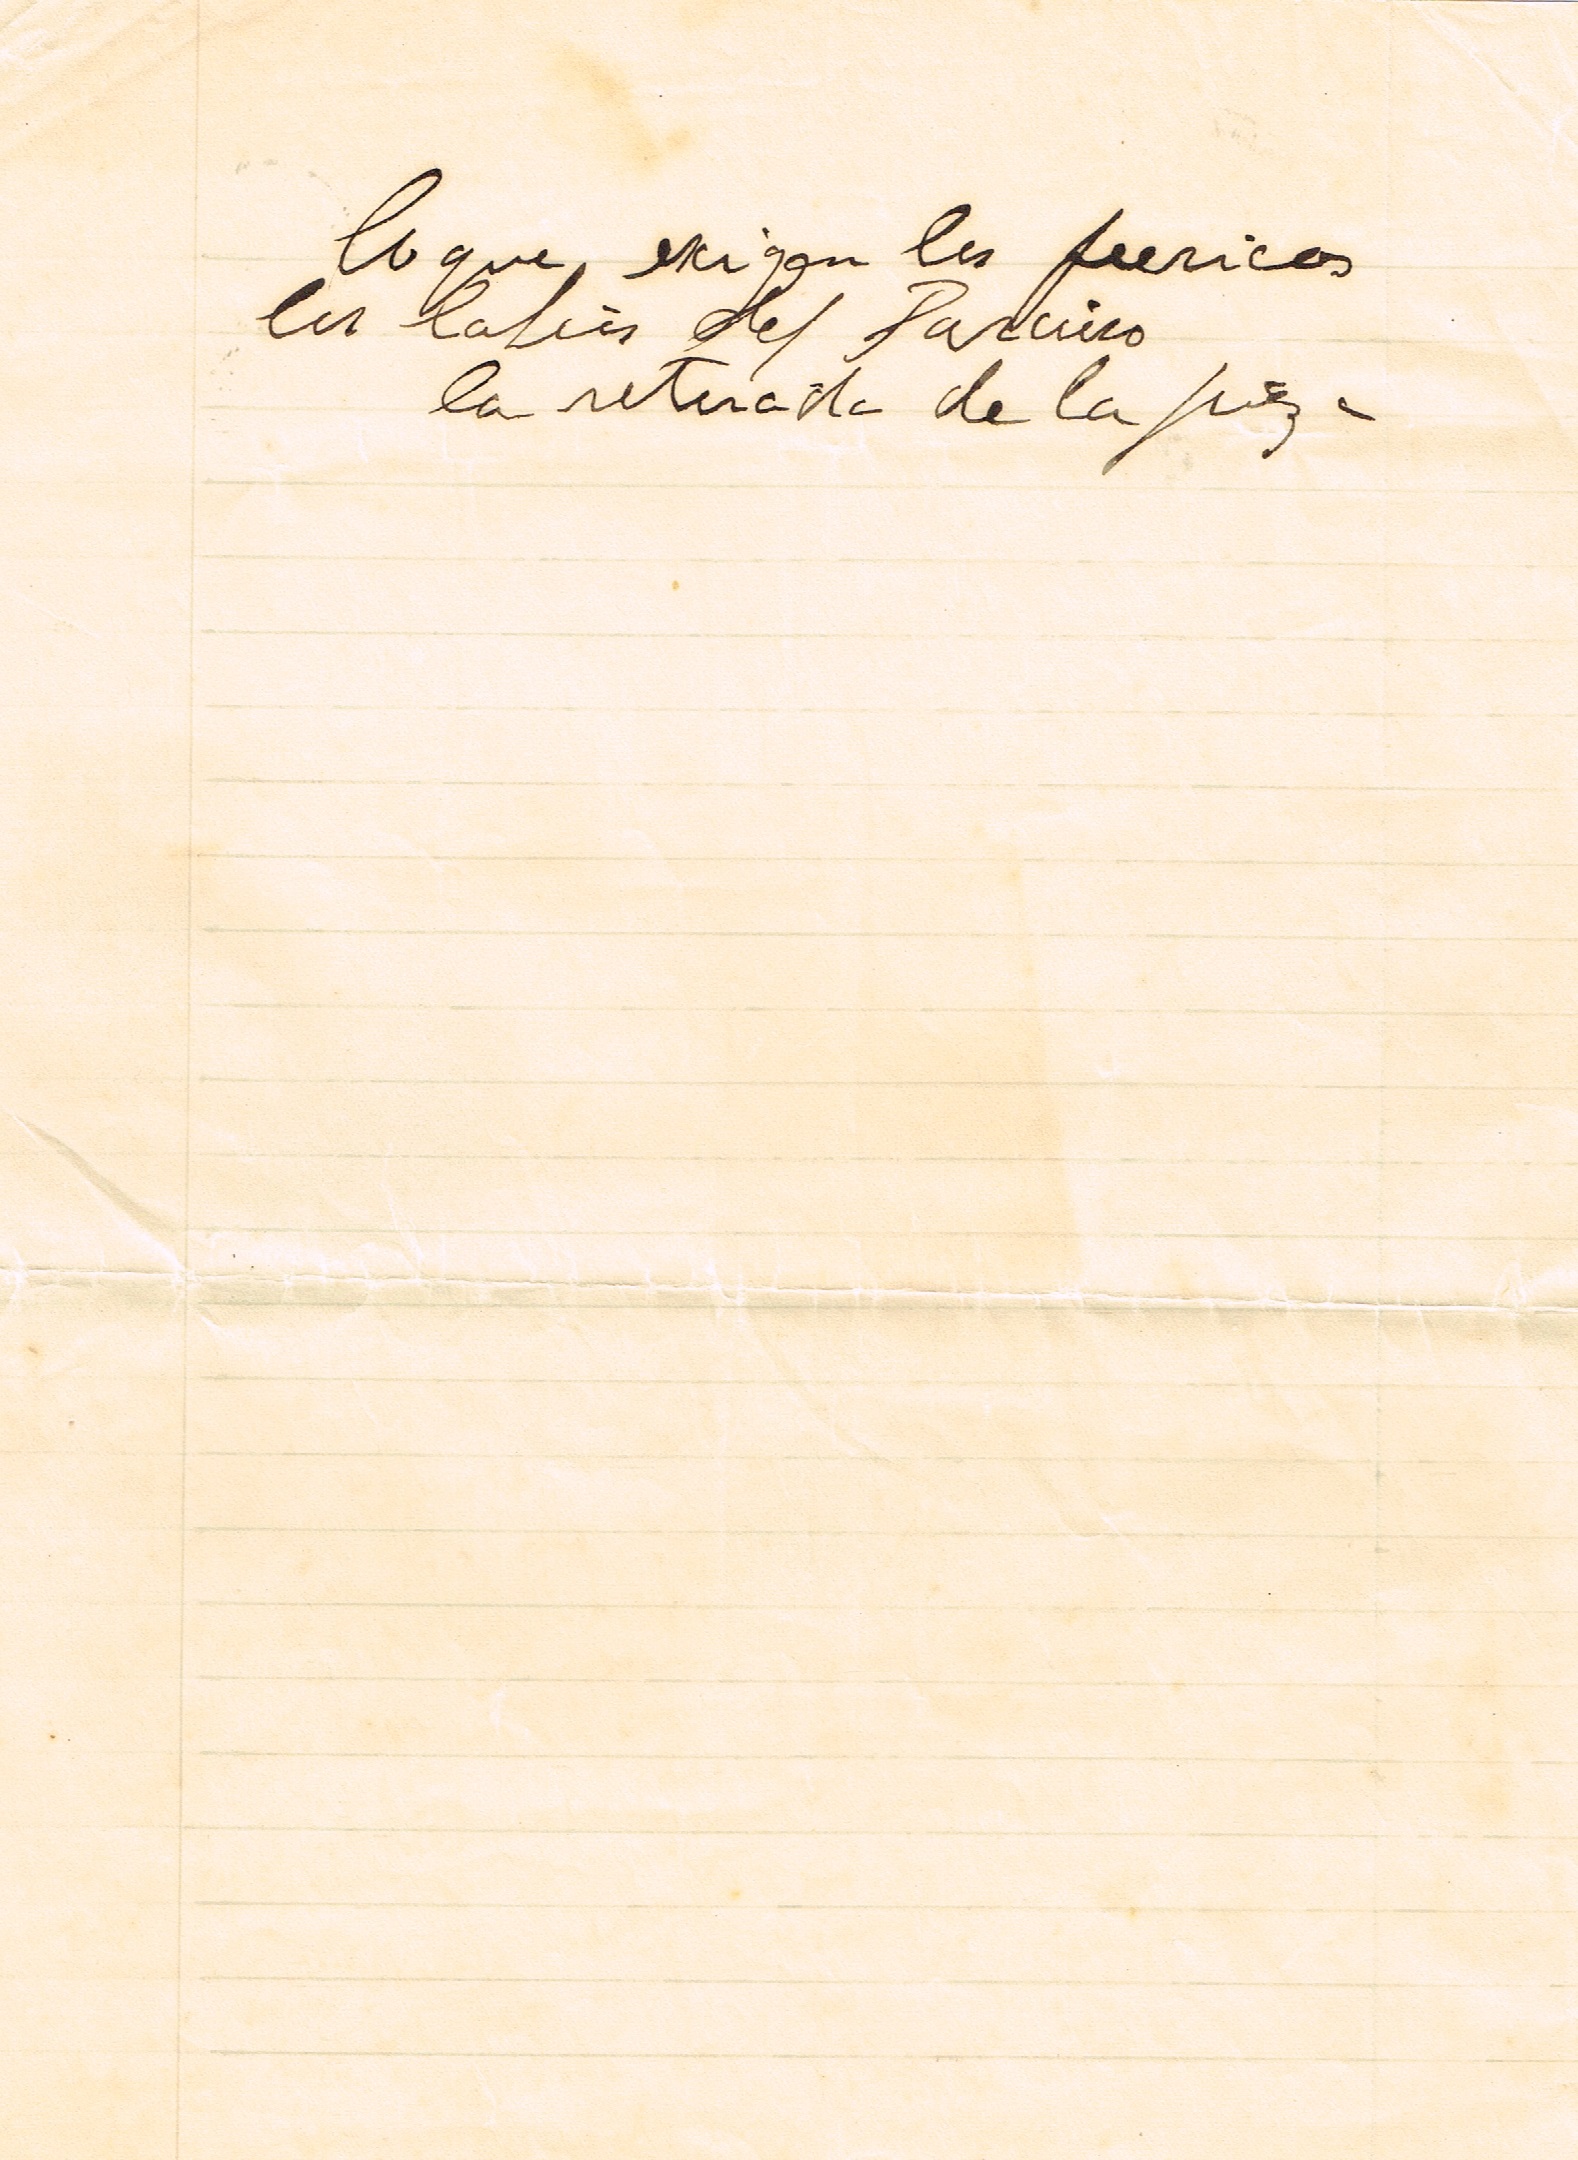 lo que exigen los pericos
los latüs del Paraiso
la retirada de la pieza